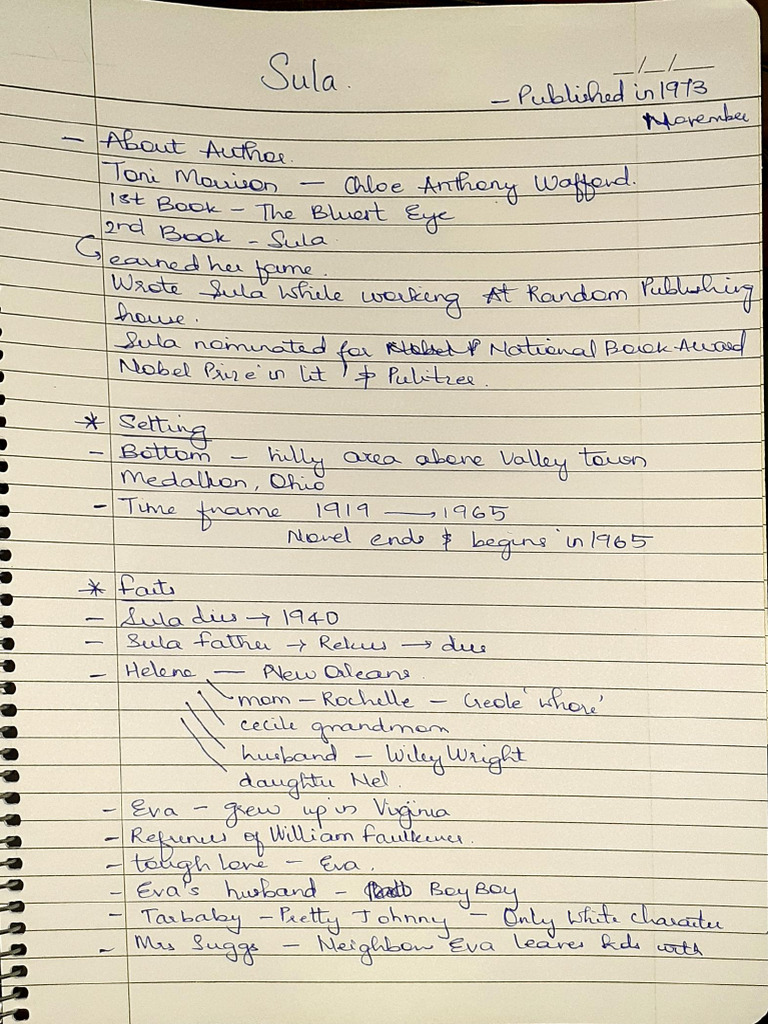 Sula.
_/_/__
- Published in 1973
November
- About Author.
Toni Morrison - Chloe Anthony Wafford.
1st Book - The Bluest Eye
2nd Book - Sula
earned her fame.
Wrote Sula while working At Random Publishing
house.
Sula nominated for National Book Award
Nobel Prize in lit & Pulitzer.
* Setting
- Bottom - hilly area above Valley town
Medallion, Ohio
- Time frame 1919 → 1965
Novel ends & begins in 1965
* Facts
- Sula dies → 1940
- Sula father → Rekus → dies
- Helene - New Orleans.
mom - Rochelle - Creole 'whore'
cecile grandmom
husband - Wiley Wright
daughter Nel.
- Eva - grew up in Virginia
- Refrences of William Faulkener.
- tough love - Eva.
- Eva's husband - BoyBoy
- Tarbaby - Pretty Johnny - Only white character
- Mrs Suggs - Neighbour Eva leaves kids with